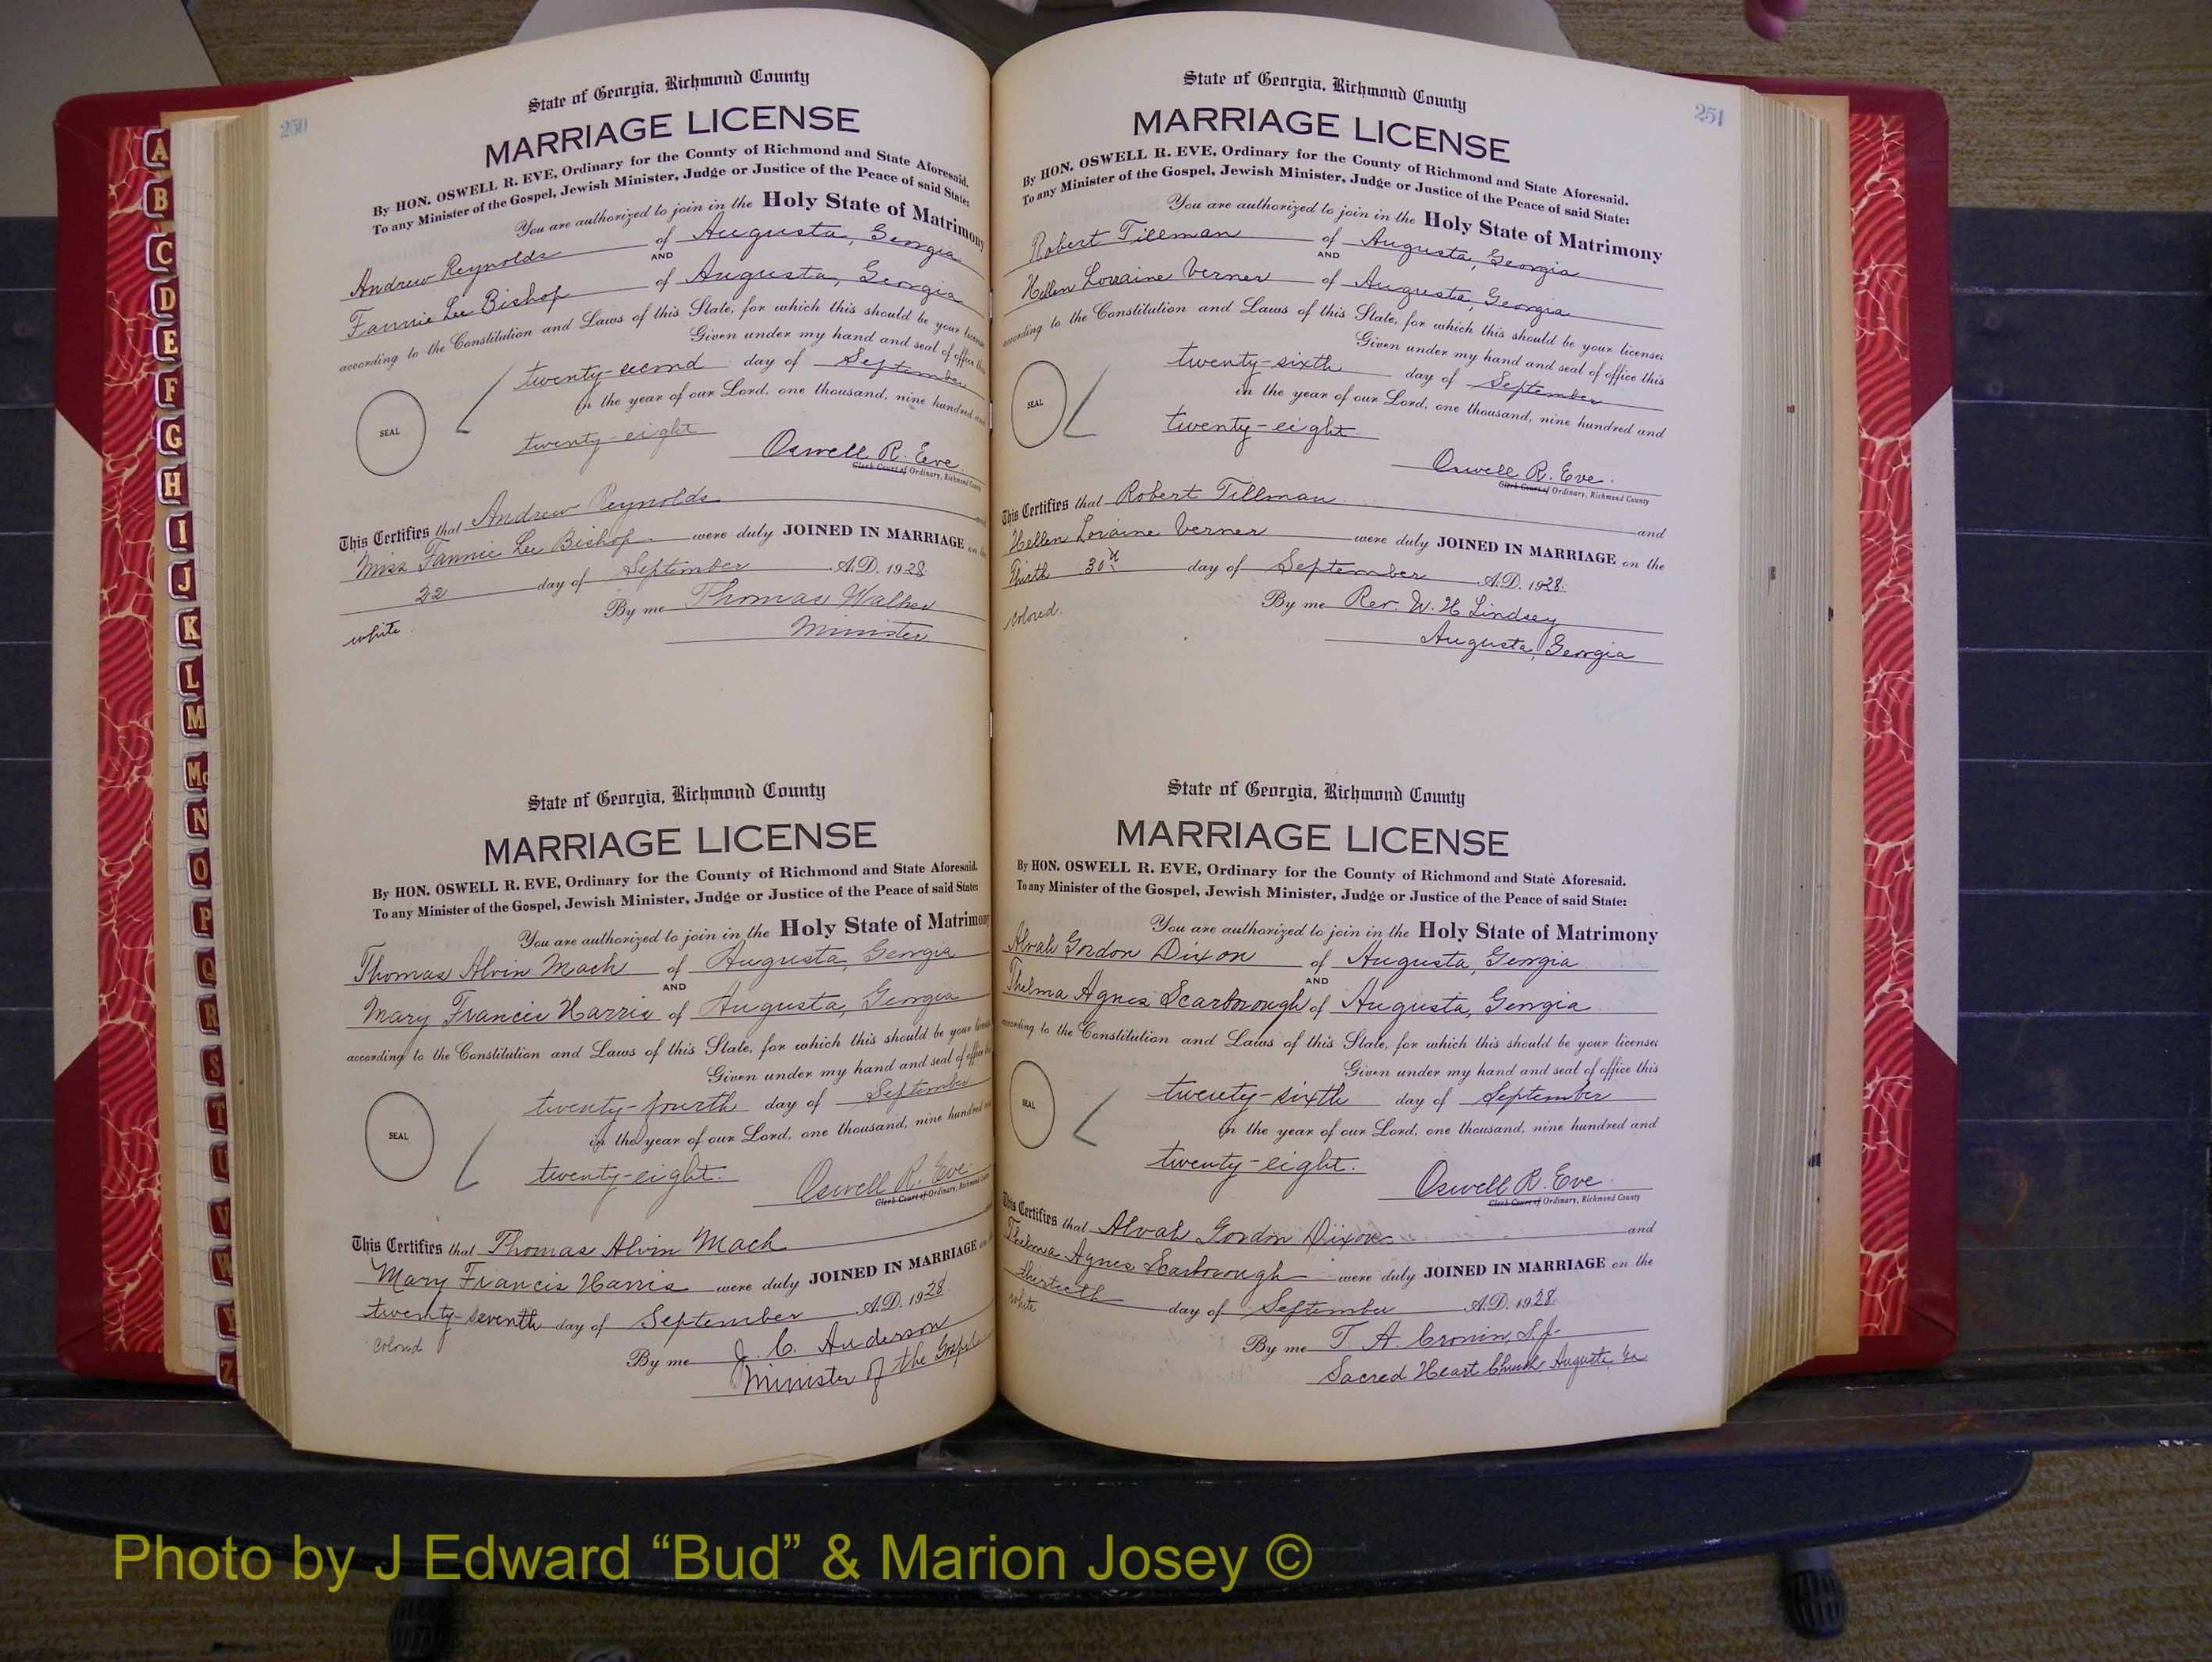 250
State of Georgia, Richmond County
MARRIAGE LICENSE
By HON. OSWELL R. EVE, Ordinary for the County of Richmond and State Aforesaid.
To any Minister of the Gospel, Jewish Minister, Judge or Justice of the Peace of said State:
You are authorized to join in the Holy State of Matrimony
Andrew Reynolds of Augusta, Georgia
AND
Fannie Lee Bishop of Augusta, Georgia
according to the Constitution and Laws of this State, for which this should be your license
Given under my hand and seal of office this
twenty-second day of September
in the year of our Lord, one thousand, nine hundred and
SEAL
twenty-eight
Oswell R. Eve
Clerk Court of Ordinary, Richmond County
This Certifies that Andrew Reynolds and
Miss Fannie Lee Bishop were duly JOINED IN MARRIAGE on the
22 day of September A.D. 1928
By me Thomas Walker
white. Minister
State of Georgia, Richmond County
MARRIAGE LICENSE
By HON. OSWELL R. EVE, Ordinary for the County of Richmond and State Aforesaid.
To any Minister of the Gospel, Jewish Minister, Judge or Justice of the Peace of said State:
You are authorized to join in the Holy State of Matrimony
Thomas Alvin Mach of Augusta, Georgia
AND
Mary Francis Harris of Augusta, Georgia
according to the Constitution and Laws of this State, for which this should be your license
Given under my hand and seal of office this
twenty-fourth day of September
SEAL
in the year of our Lord, one thousand, nine hundred and
twenty-eight.
Oswell R. Eve
Clerk Court of Ordinary, Richmond County
This Certifies that Thomas Alvin Mach
Mary Francis Harris were duly JOINED IN MARRIAGE on
twenty-seventh day of September A.D. 1928
colored
By me J. C. Anderson
Minister of the Gospel
251
State of Georgia, Richmond County
MARRIAGE LICENSE
By HON. OSWELL R. EVE, Ordinary for the County of Richmond and State Aforesaid.
To any Minister of the Gospel, Jewish Minister, Judge or Justice of the Peace of said State:
You are authorized to join in the Holy State of Matrimony
Robert Tillman of Augusta, Georgia
AND
Hellen Loraine Verner of Augusta, Georgia
according to the Constitution and Laws of this State, for which this should be your license:
Given under my hand and seal of office this
twenty-sixth day of September
SEAL
in the year of our Lord, one thousand, nine hundred and
twenty-eight.
Oswell R. Eve.
Clerk Court of Ordinary, Richmond County
This Certifies that Robert Tillman and
Hellen Loraine Verner were duly JOINED IN MARRIAGE on the
30th day of September A.D. 1928.
colored. By me Rev. W. H Lindsey
Augusta, Georgia
State of Georgia, Richmond County
MARRIAGE LICENSE
By HON. OSWELL R. EVE, Ordinary for the County of Richmond and State Aforesaid.
To any Minister of the Gospel, Jewish Minister, Judge or Justice of the Peace of said State:
You are authorized to join in the Holy State of Matrimony
Alvah Gordon Dixon of Augusta, Georgia
AND
Thelma Agnes Scarborough of Augusta, Georgia
according to the Constitution and Laws of this State, for which this should be your license:
Given under my hand and seal of office this
twenty-sixth day of September
SEAL
in the year of our Lord, one thousand, nine hundred and
twenty-eight.
Oswell R. Eve.
Clerk Court of Ordinary, Richmond County
This Certifies that Alvah Gordon Dixon and
Thelma Agnes Scarborough were duly JOINED IN MARRIAGE on the
thirtieth day of September A.D. 1928
white
By me T. A. Cronin S.J.
Sacred Heart Church, Augusta, Ga
A
B
C
D
E
F
G
H
I
J
K
L
M
Mc
N
O
P
Q
R
S
T
U
V
W
Y
Z
Photo by J Edward “Bud” & Marion Josey ©